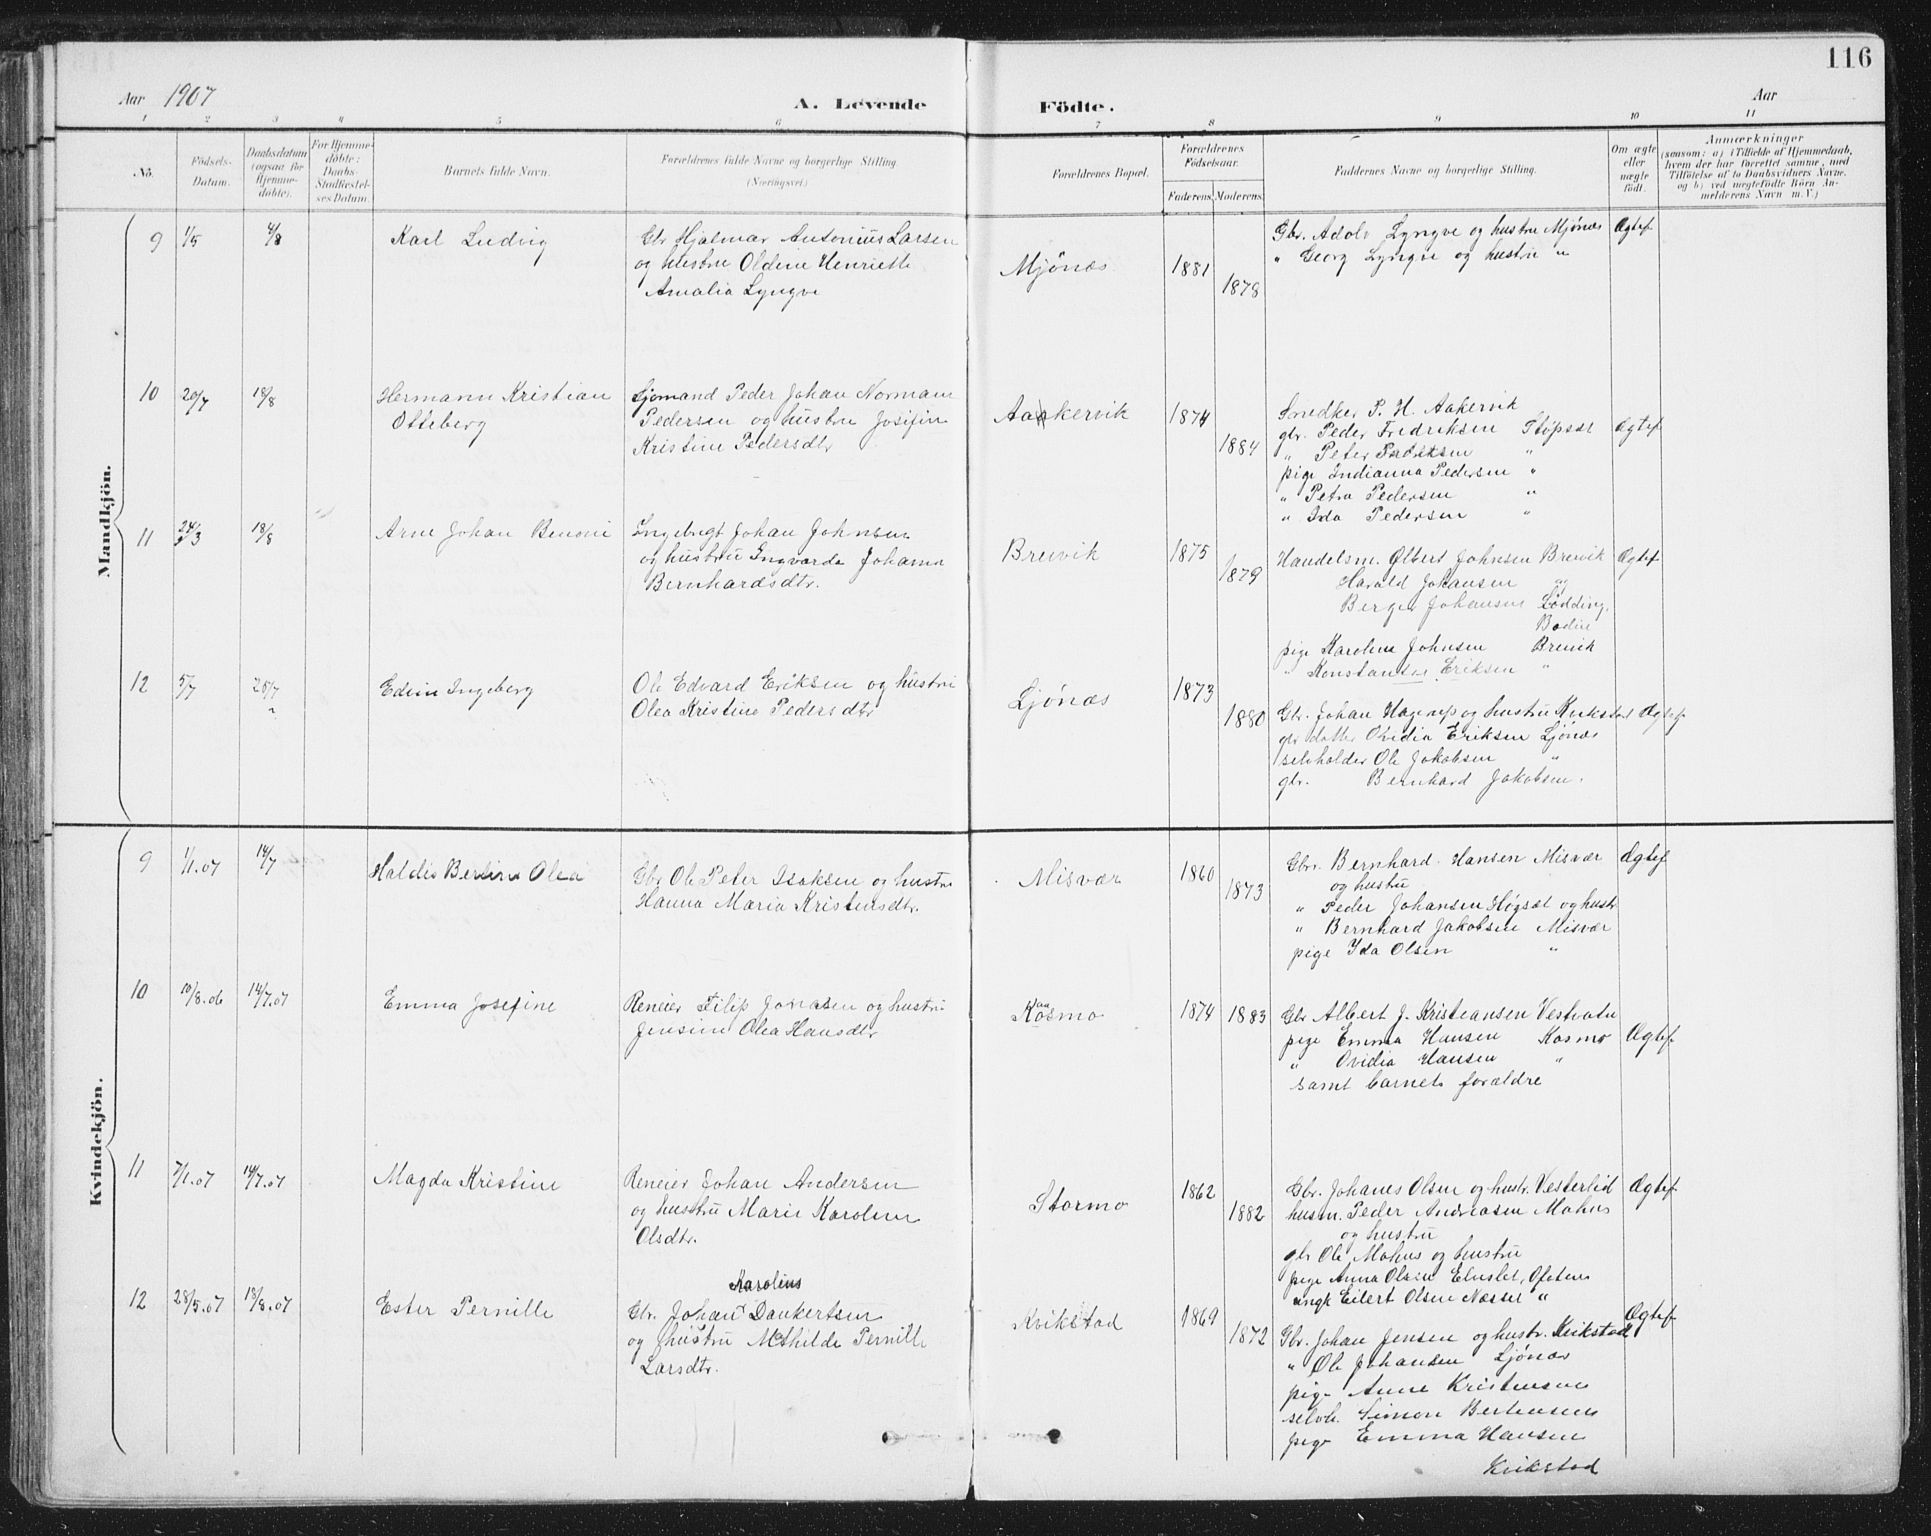 116
Aar 1907
A. Levende Fødte.
Aar
1 2 3 4 5 6 7 8 9 10 11
No.
Fødsels-Datum.
Daabsdatum (ogsaa for Hjemmedøbte).
For Hjemmedøbte: Daabs-Stadfæstelses Datum.
Barnets fulde Navn.
Forældrenes fulde Navne og borgerlige Stilling. (Næringsvei.)
Forældrenes Bopæl.
Forældrenes Fødselsaar.
Faderens. Moderens.
Faddernes Navne og borgerlige Stilling.
Om ægte eller uægte født.
Anmærkninger
(saasom: a) i Tilfælde af Hjemmedaab, hvem der har forrettet samme, med Tilføielse af to Daabsvidners Navne, og b) ved uægtefødte Børn Anmelderens Navn m. V.)
Mandkjön.
9 1/5 4/8 Karl Ludvig
Gbr Hjalmar Antonius Larsen
og hustru Oldene Henriette
Amalia Lyngve
Mjönæs 1881 1878
Gbr. Adolv Lyngve og hustru Mjönæs Ægtef
" Georg Lyngve og hustru "
10 20/7 18/8 Hermann Kristian
Otteberg
Sjømand Peder Johan Normann
Pedersen og hustru Josefine
Kristine Pedersdtr
Aakervik 1874 1884
Snedker P. H. Aakervik
gbr. Peder Fredriksen Støpsæt Ægtef
" Peter Fredriksen "
pige Indianna Pedersen "
" Petra Pedersen "
" Ida Pedersen "
11 24/3 18/8 Arne Johan Benoni
Ingebrigt Johan Johnsen
og hustru Ingvarda Johanna
Bernhardsdtr.
Breivik 1875 1879
Handelsm. Olbert Johnsen Breivik Ægtef
Harald Johansen "
Berger Johansen Lødding,
Bodin
pige Karoline Johnsen Breivik
" Konstanse Eriksen "
12 5/7 28/7 Edvin Ingeberg
Ole Edvard Eriksen og hustru
Olea Kristine Pedersdtr
Ljönæs 1873 1880
Gbr. Johan Hagerup og hustru Kvikstad Ægtef
gbr datter Ovidia Eriksen Ljönæs
selvholder Ole Jakobsen "
gbr. Bernhard Jakobsen.
Kvindekjön.
9 1/1.07 14/7 Haldis Bertine Olea
Gbr Ole Peter Isaksen og hustru
Hanna Maria Kristensdtr.
Misvær 1860 1873
Gbr. Bernhard Hansen Misvær Ægtef
og hustru
" Peder Johansen Høgsæt og hustr
" Bernhard Jakobsen Misvær
pige Ida Olsen "
10 10/8.06 14/7.07 Emma Josefine
Reneier Filip Jonasen og hustru
Jensine Olea Hansdtr
Kosmo 1874 1883
aa
Gbr Albert J. Kristiansen Vestvatn
pige Emma Hansen Kosmo Ægtef
" Ovidia Hansen "
samt barnets forældre
11 7/1.07 14/7.07 Magda Kristine
Reneier Johan Andersen
og hustru Marie Karoline
Olsdtr.
Stormo 1862 1882
Gbr. Johanes Olsen og hustr. Vesterlid Ægtef
husm. Peder Andreasen Mohus
og hustru
gbr Ole Mohus og hustru
pige Anna Olsen Elvslet, Ofoten
ungk Eilert Olsen Næsset "
12 28/5.07 18/8.07 Ester Pernille
Karolius
Gbr. Johan Dankertsen
og hustru Mathilde Pernille
Larsdtr.
Kvikstad 1869 1872
Gbr. Johan Jensen og hustr. Kvikstad Ægtef
" Ole Johansen Ljönæs
pige Anne Kristensen
selvh. Simon Bertensen
pige Emma Hansen
Kvikstad